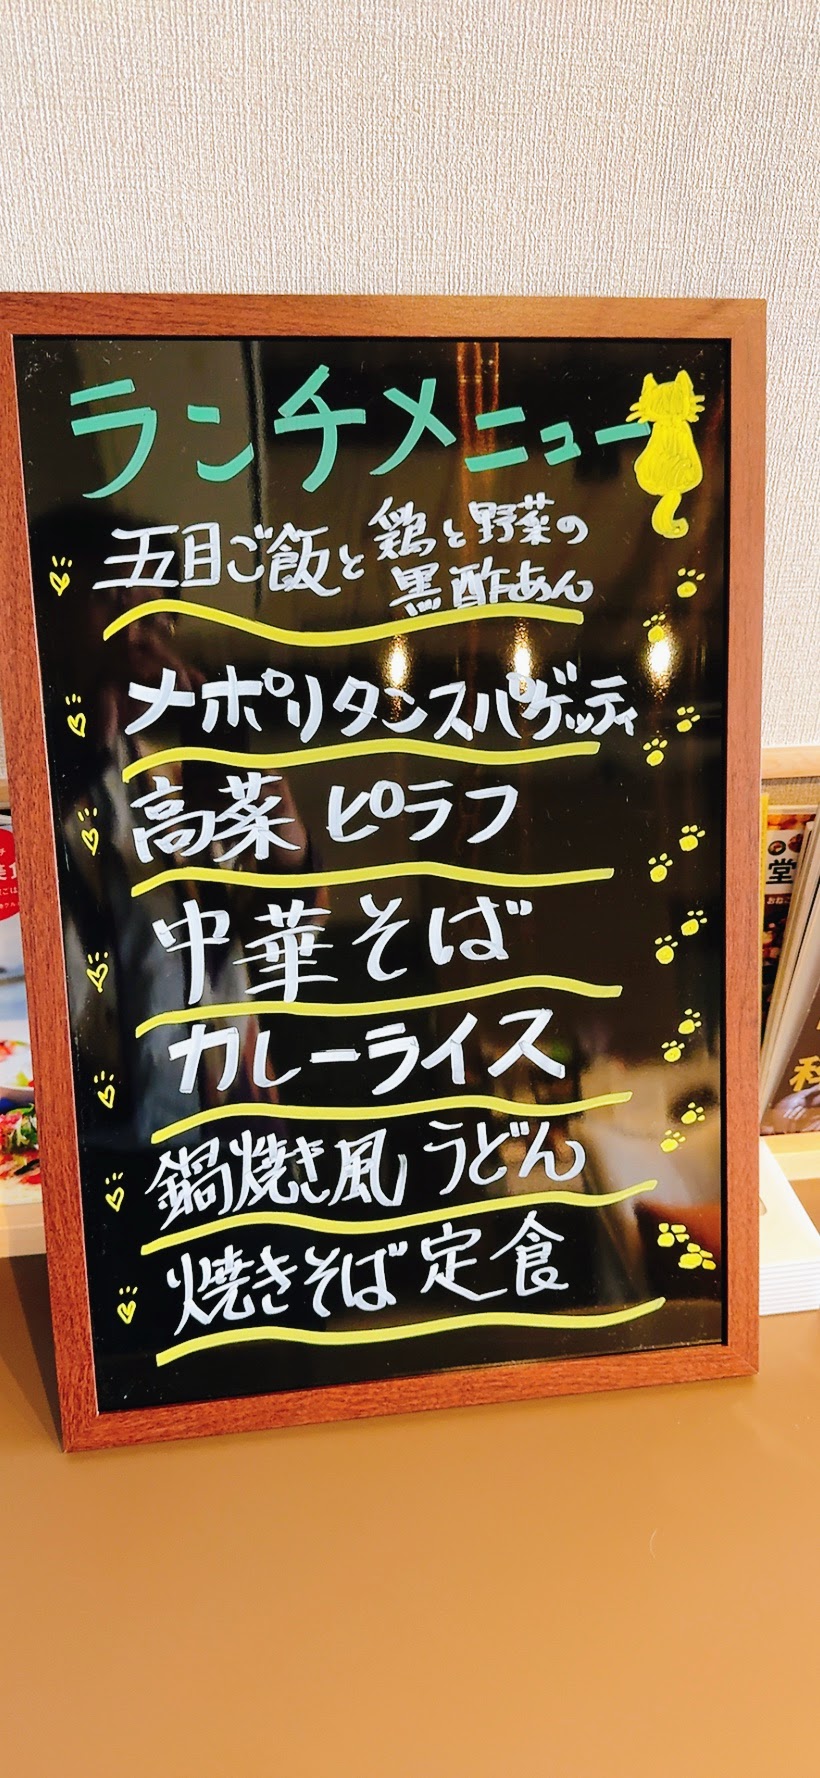 ランチメニュー
五目ご飯と鶏と野菜の
黒酢あん
ナポリタンスパゲッティ
高菜ピラフ
中華そば
カレーライス
鍋焼き風うどん
焼きそば定食
堂